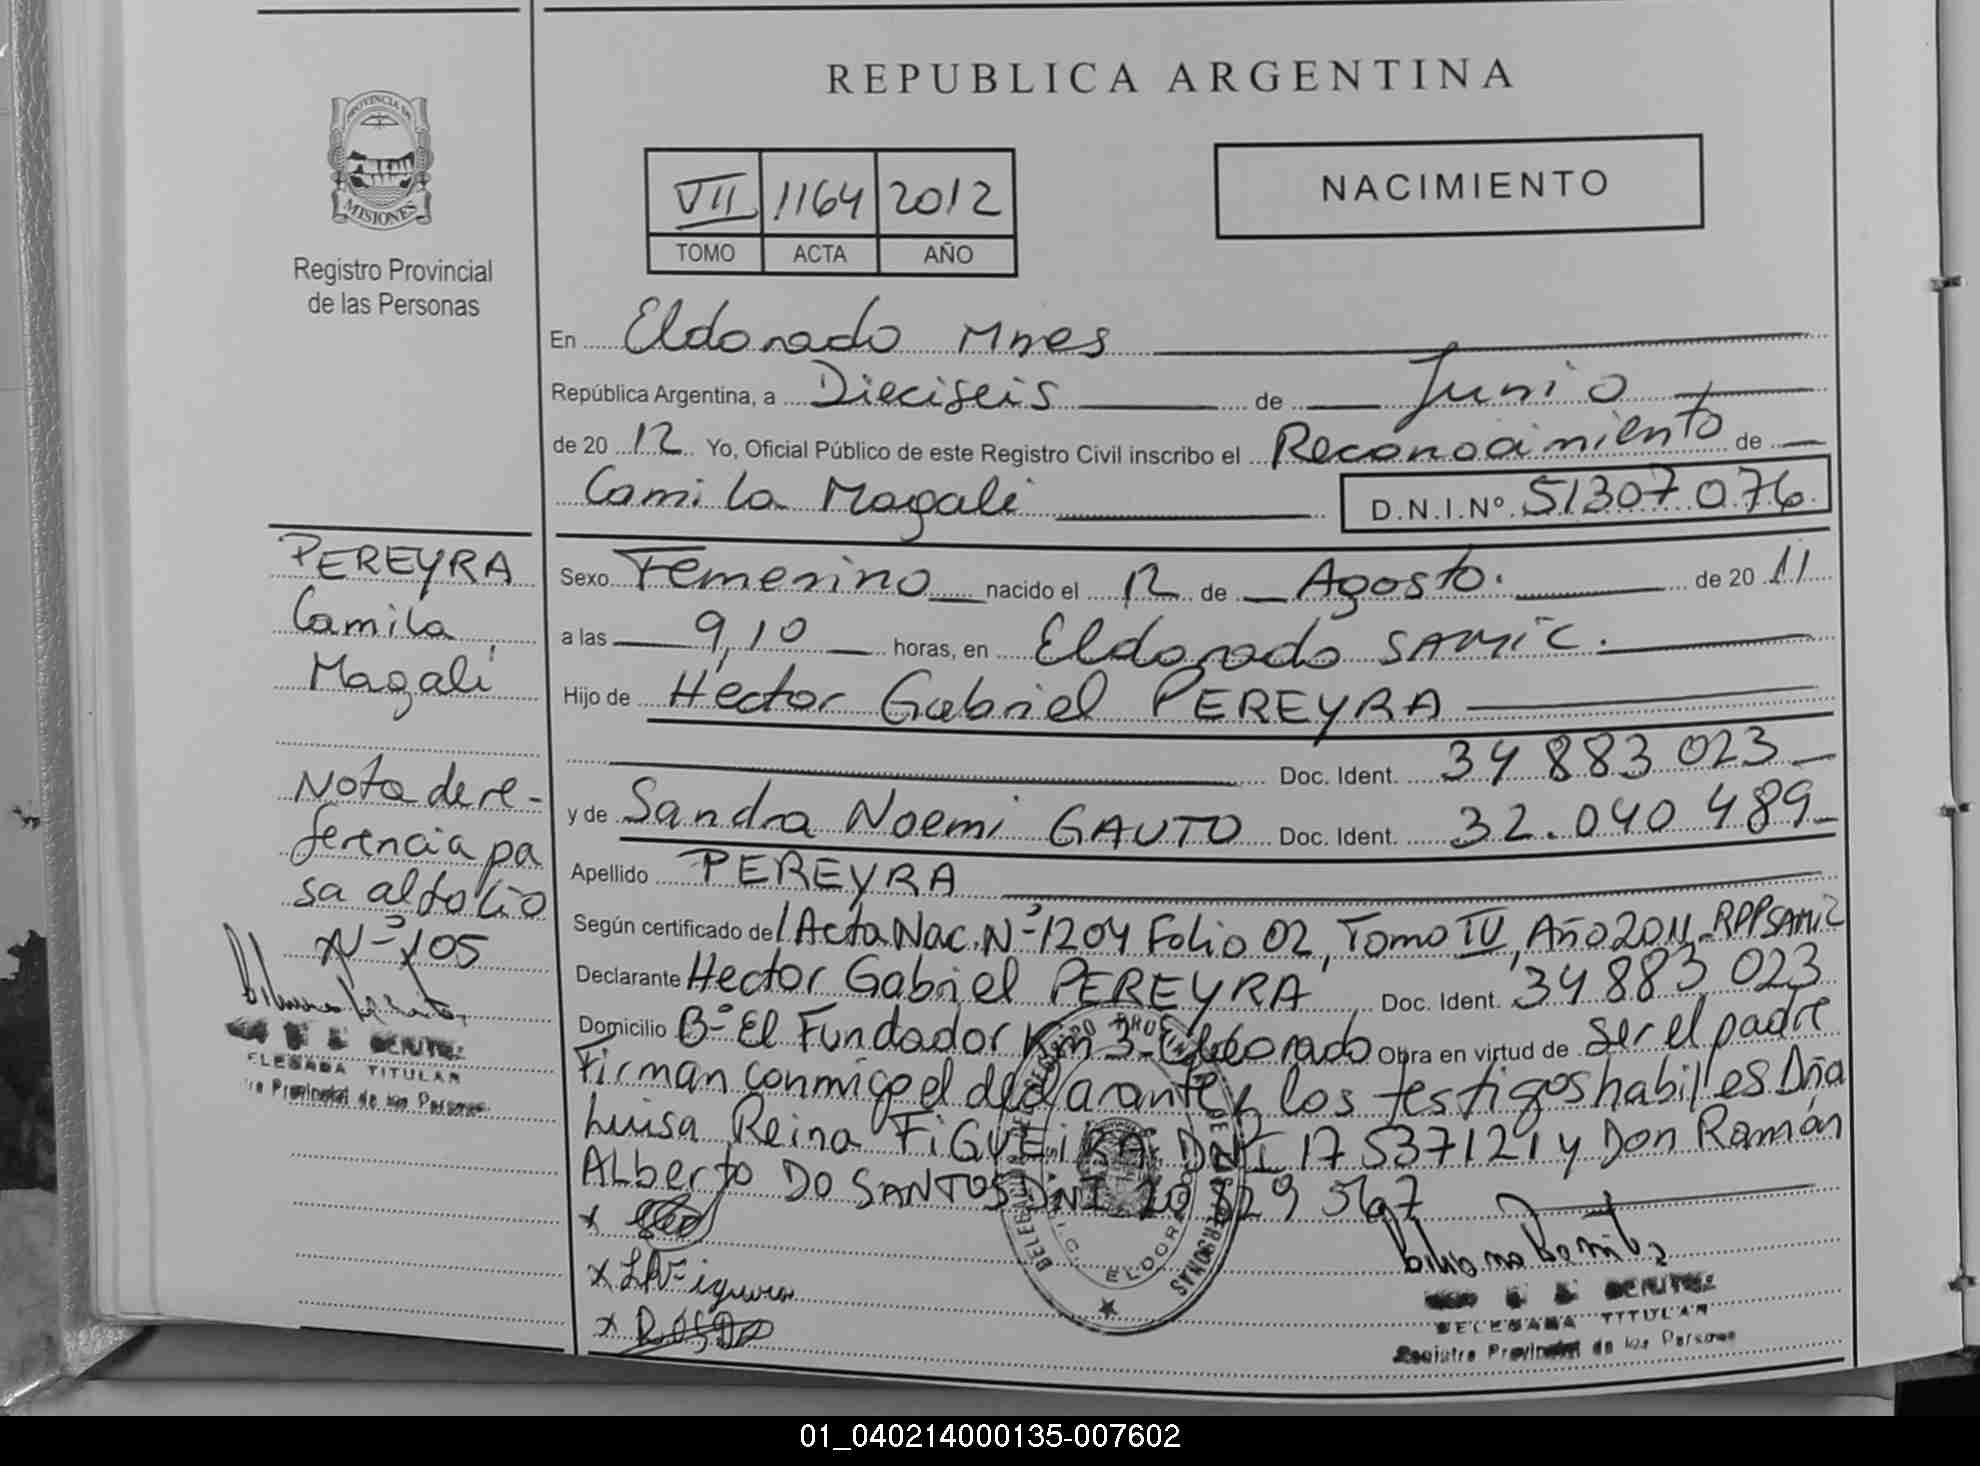 REPUBLICA ARGENTINA
PROVINCIA DE
MISIONES
Registro Provincial
de las Personas
VII 1164 2012
TOMO ACTA AÑO
NACIMIENTO
En Eldorado Mnes
República Argentina, a Dieciseis de Junio
de 20 12 Yo, Oficial Público de este Registro Civil inscribo el Reconocimiento de
Camila Magali D.N.I.Nº 51307076
PEREYRA
Camila
Magali
Nota de re-
ferencia pa
sa al folio
Nº 105
ELEGADA TITULAR
Provincial de las Personas
Sexo Femenino nacido el 12 de Agosto. de 20 11
a las 9,10 horas, en Eldorado SAMIC.
Hijo de Hector Gabriel PEREYRA
Doc. Ident. 34 883 023
y de Sandra Noemi GAUTO Doc. Ident. 32.040 489
Apellido PEREYRA
Según certificado de Acta Nac. Nº 1204 Folio 02, Tomo IV, Año 2011 RPPSAMIC
Declarante Hector Gabriel PEREYRA Doc. Ident. 34 883 023
Domicilio Bº El Fundador Km 3 - Eldorado Obra en virtud de ser el padre
Firman conmigo el declarante y los testigos habiles Dña
Luisa Reina FiGUEiRA DNI 17 537121 y Don Ramón
Alberto DO SANTOS DNI 20 829 567
x
x
x
ELDORADO
Bibiana Benitez
BENITEZ
DELEGADA TITULAR
Registro Provincial de las Personas
01_040214000135-007602